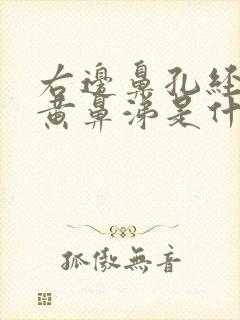 右邊鼻孔經
黃鼻涕是什
孤傲無音